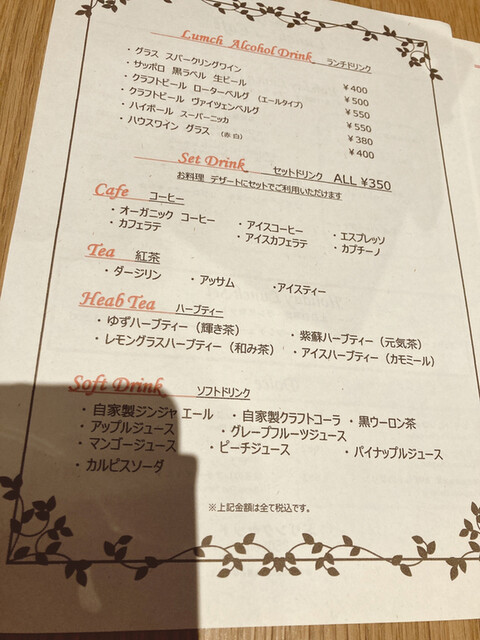 Lumch Alcohol Drink ランチドリンク
・グラス スパークリングワイン ¥400
・サッポロ 黒ラベル 生ビール ¥500
・クラフトビール ローターベルグ (エールタイプ) ¥550
・クラフトビール ヴァイツェンベルグ ¥550
・ハイボール スーパーニッカ ¥380
・ハウスワイン グラス (赤 白) ¥400
Set Drink セットドリンク ALL ¥350
お料理 デザートにセットでご利用いただけます
Cafe コーヒー
・オーガニック コーヒー ・アイスコーヒー ・エスプレッソ
・カフェラテ ・アイスカフェラテ ・カプチーノ
Tea 紅茶
・ダージリン ・アッサム ・アイスティー
Heab Tea ハーブティー
・ゆずハーブティー（輝き茶） ・紫蘇ハーブティー（元気茶）
・レモングラスハーブティー（和み茶） ・アイスハーブティー（カモミール）
Soft Drink ソフトドリンク
・自家製ジンジャエール ・自家製クラフトコーラ ・黒ウーロン茶
・アップルジュース ・グレープフルーツジュース
・マンゴージュース ・ピーチジュース ・パイナップルジュース
・カルピスソーダ
※上記金額は全て税込です。